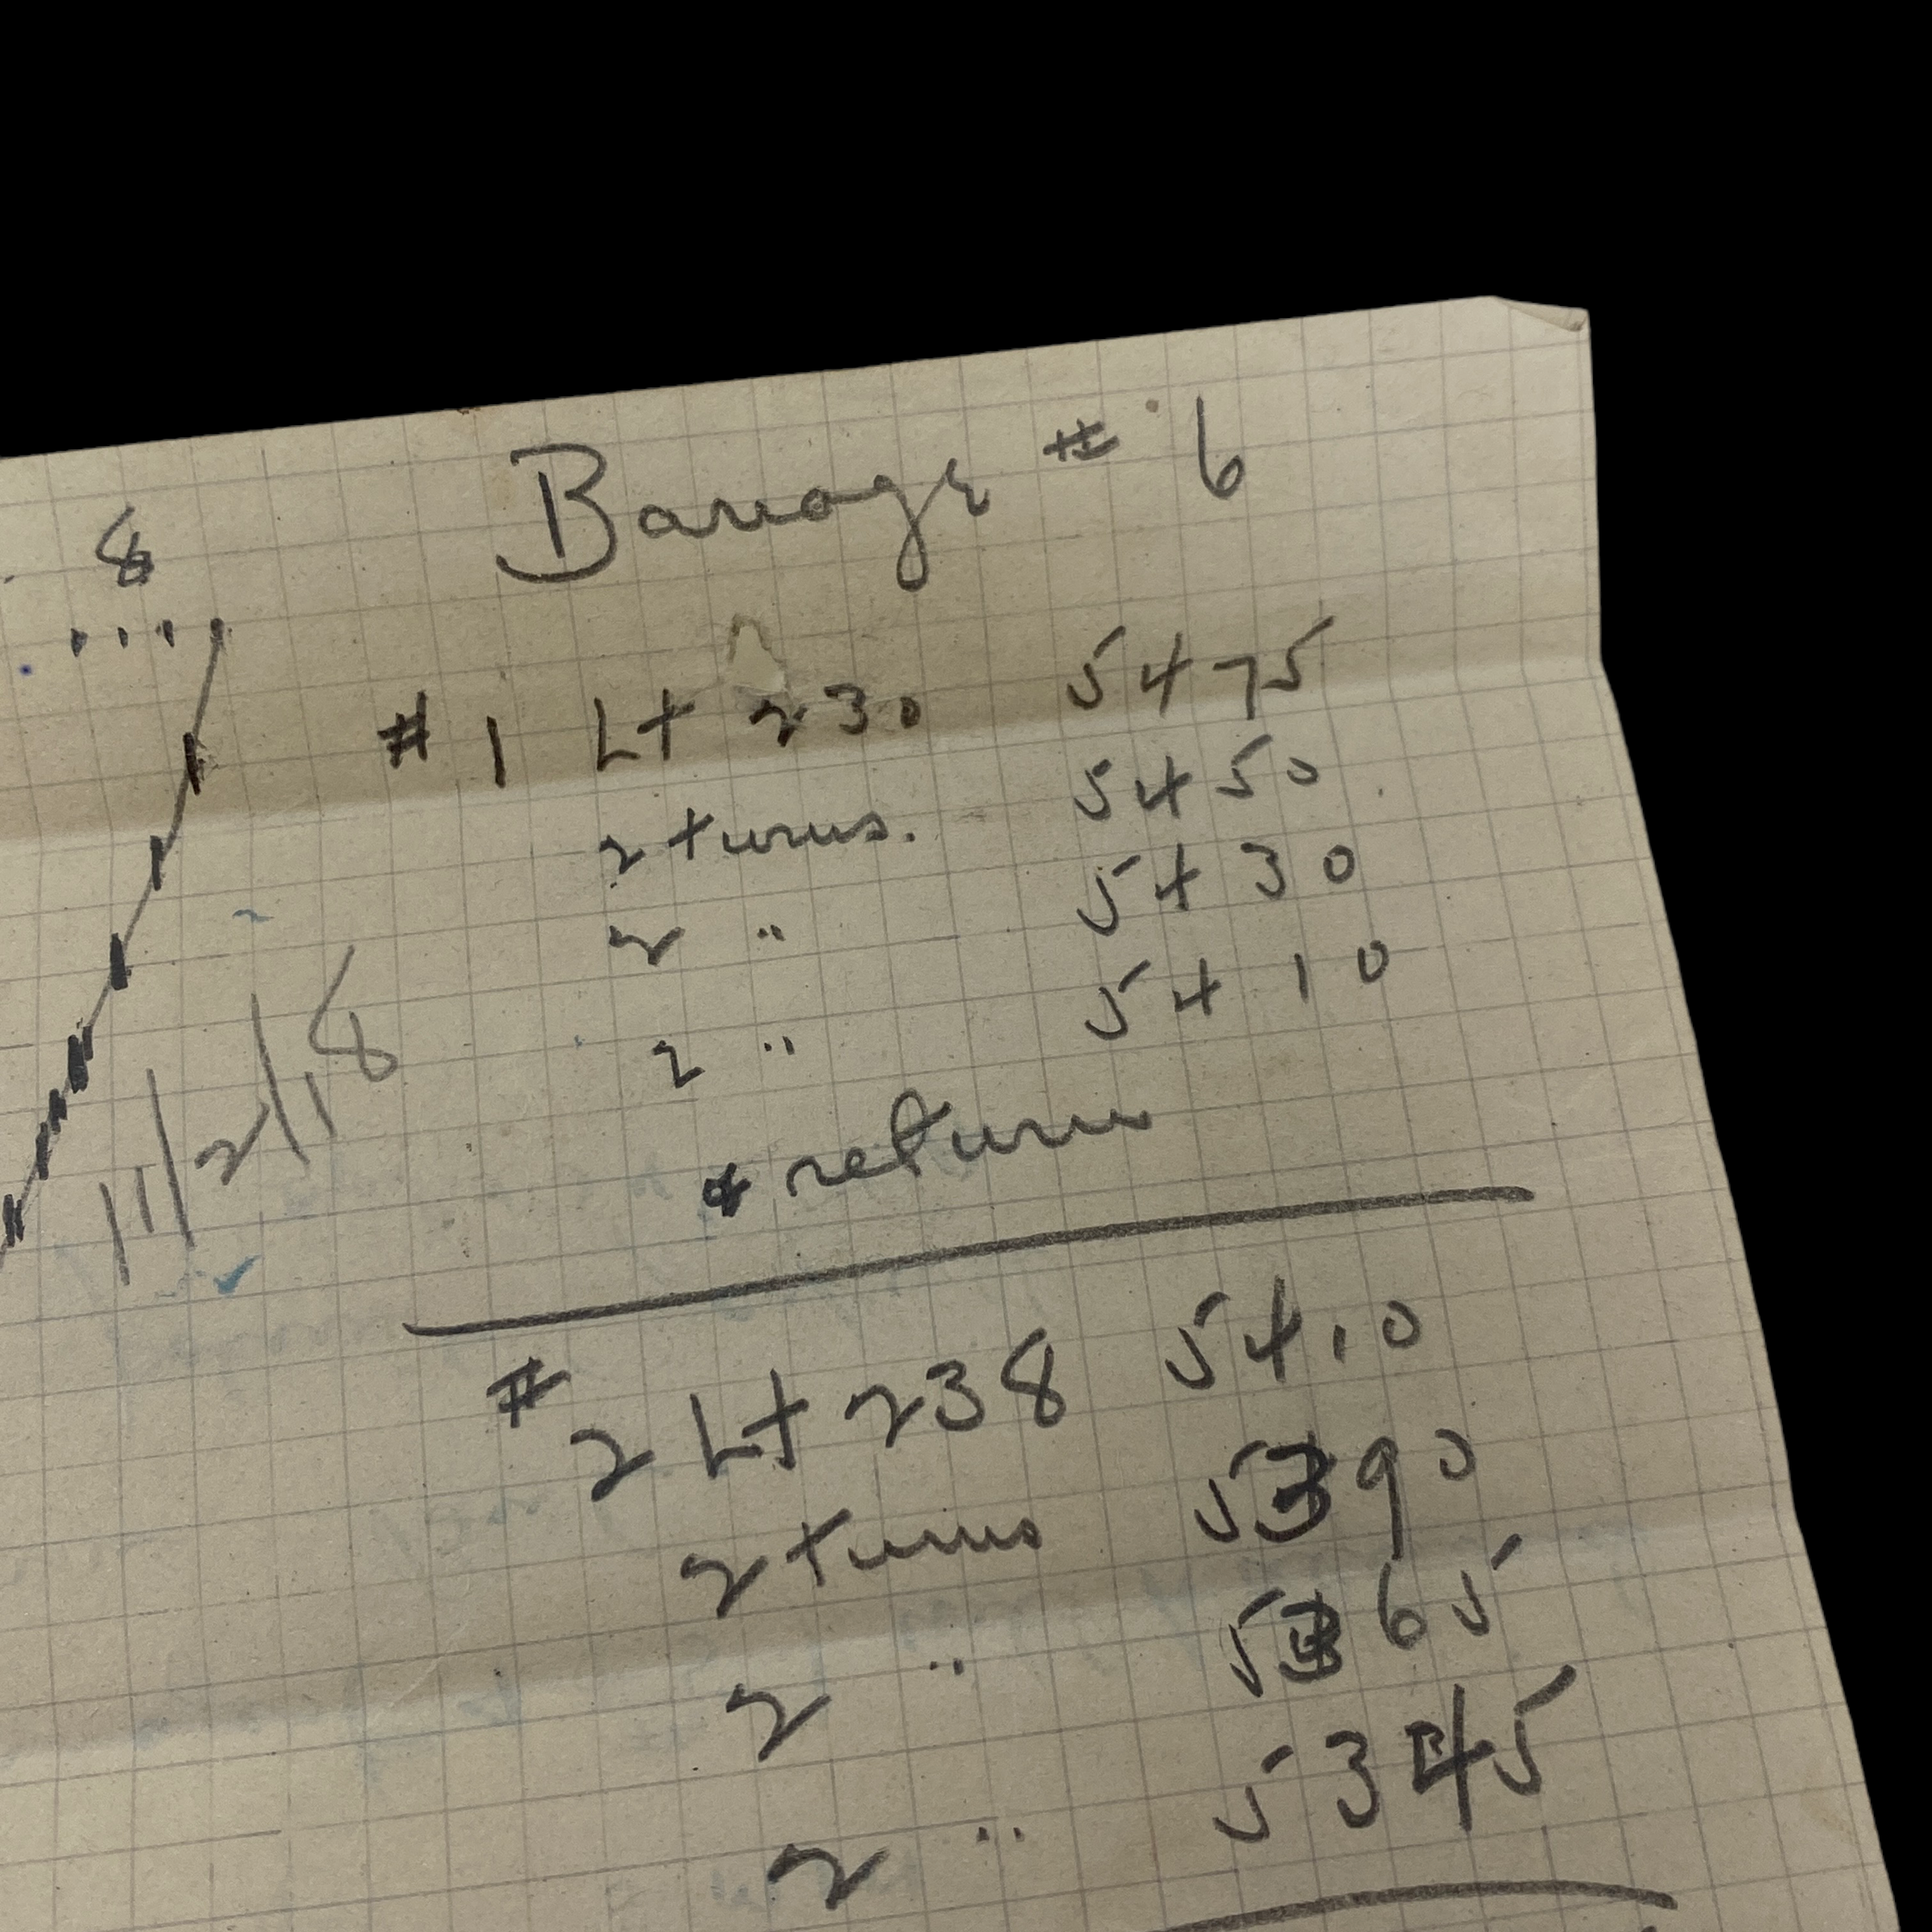 Barrage # 6
8
# 1 Lt 230 5475
2 turns. 5450
2 " 5430
2 " 5410
& return
11/2/18
# 2 Lt 238 5410
2 turns 5390
2 " 5365
2 " 5345